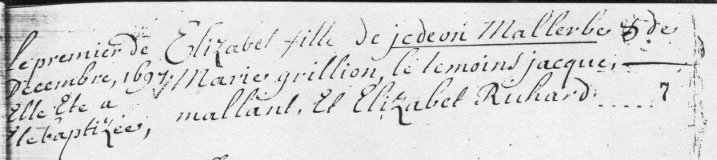 le premier de Elizabet fille de jedeon Mallerbe & de
Decembre, 1697, Marie grillion, le temoins jacque,
Elle Ete a mallant, Et Elizabet Richard ..... 7
ete baptizée,